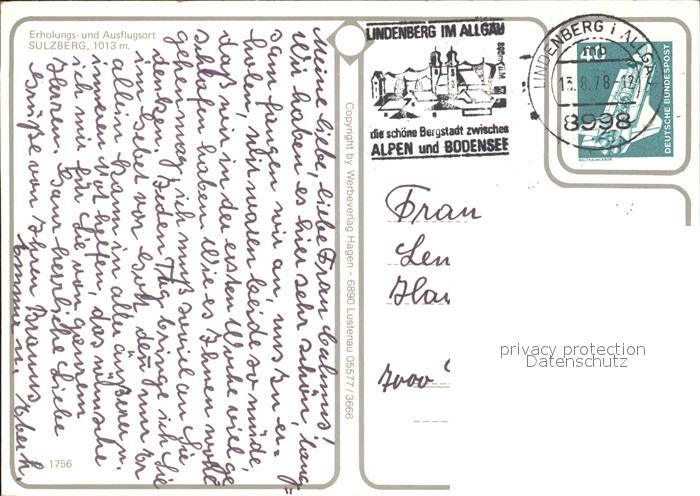 Erholungs- und Ausflugsort
SULZBERG, 1013 m.
Meine liebe, liebe Frau
Wir haben es hier sehr schön, lang=
sam fangen wir an, uns zu er=
holen, wir waren beide so müde,
daß wir in der ersten Woche viel ge
schlafen haben. Wie es Ihnen wohl
gehn mag, ich muß soviel an Sie
denken, jeden Tag bringe ich Sie
in vor Gott, denn nur Er
allein kann in aller äußeren u.
inneren Not helfen, das wünsche
ich mir für Sie von ganzem
Herzen. Ganz herzliche liebe
Grüße von Ihren
1756
Copyright by Werbeverlag Hagen - 6890 Lustenau 05577/3666
LINDENBERG IM ALLGÄU
die schöne Bergstadt zwischen
ALPEN und BODENSEE
LINDENBERG i ALLGÄU
mb
13.8.78-12
8998
40
DEUTSCHE BUNDESPOST
WELTRAUMLABOR
Frau
Len
Hau
7000
privacy protection
Datenschutz